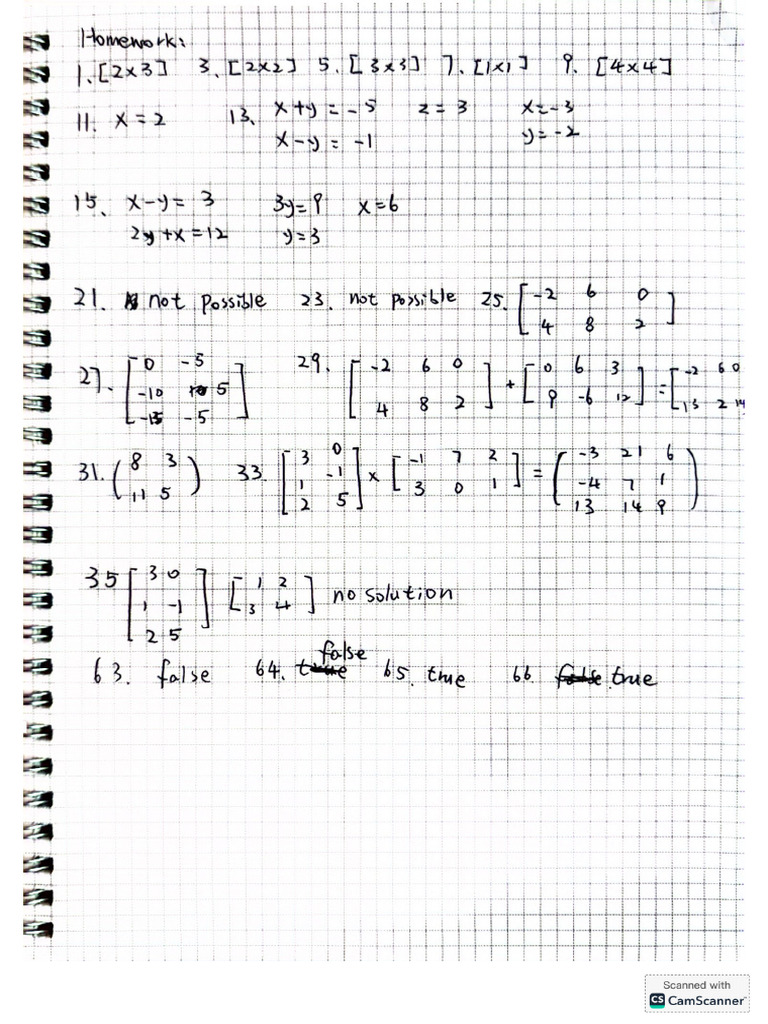 Homework:
1. [2x3] 3. [2x2] 5. [3x3] 7. [1x1] 9. [4x4]
11. x = 2 13. x+y = -5 z = 3 x = -3
x-y = -1 y = -2
15. x-y = 3 3y = 9 x = 6
2y+x = 12 y = 3
21. not possible 23. not possible 25. [-2 6 0
4 8 2]
27. [0 -5
-10 5
-15 -5]
29. [-2 6 0
4 8 2] + [0 6 3
9 -6 12] = [-2 6 0
13 2 14
31. (8 3
11 5)
33. [3 0
1 -1
2 5] x [-1 7 2
3 0 1] = (-3 21 6
-4 7 1
13 14 9)
35 [3 0
1 -1
2 5] [1 2
3 4] no solution
63. false 64. false 65. true 66. true
Scanned with
CS CamScanner